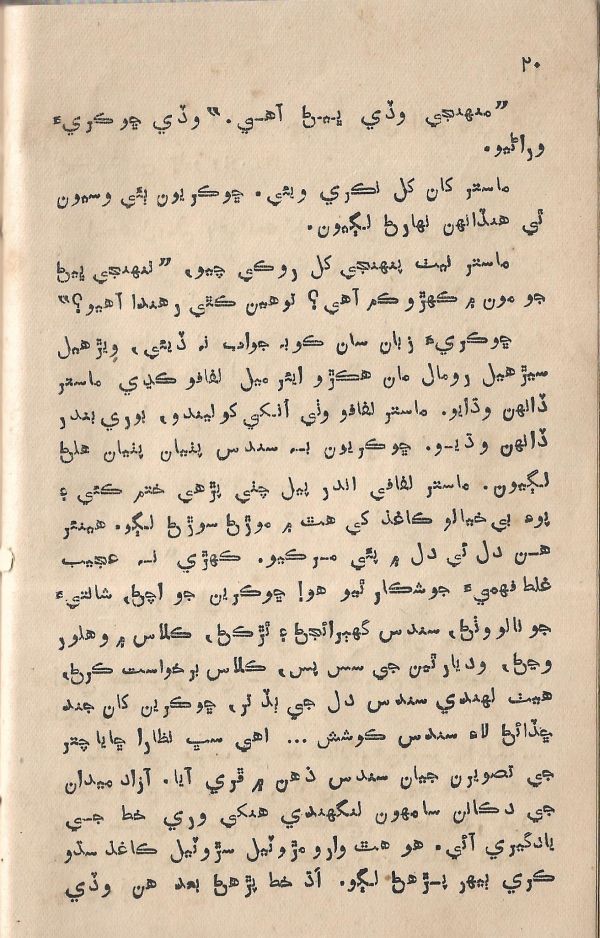 ۲۰
”منهنجي وڏي ڀيڻ آهي.“ وڏي ڇوڪريءَ
وراڻيو.
ماستر کان کل نڪري ويئي. ڇوڪريون ٻئي وسيون
ٿي هيڏانهن نهارڻ لڳيون.
ماستر نيٺ پنهنجي کل روڪي چيو، ”تنهنجي ڀيڻ
جو مون ۾ ڪهڙو ڪم آهي؟ توهين ڪٿي رهندا آهيو؟“
ڇوڪريءَ زبان سان ڪوبہ جواب نہ ڏيئي، ويڙهيل
سيڙهيل رومال مان هڪڙو ايئر ميل لفافو ڪڍي ماستر
ڏانهن وڌايو. ماستر لفافو وٺي اُنکي کوليندو، بوري بندر
ڏانهن وڌيو. ڇوڪريون بہ سندس پٺيان پٺيان هلڻ
لڳيون. ماستر لفافي اندر پيل چٺي پڙهي ختم ڪئي ۽
پوءِ بي خيالو ڪاغذ کي هٿ ۾ موڙڻ سوڙڻ لڳو. هينئر
هن دل ئي دل ۾ پئي مرڪيو. ڪهڙي نہ عجيب
غلط فهميءَ جو شڪار ٿيو هو! ڇوڪرين جو اچڻ، شانتيءَ
جو نالو وٺڻ، سندس گهبرائجڻ ۽ ٿڙڪڻ، ڪلاس ۾ وهلور
وڃڻ، وديارٿين جي سس پس، ڪلاس برخواست ڪرڻ،
هيٺ لهندي سندس دل جي ٻڏ تر، ڇوڪرين کان جند
ڇڏائڻ لاءِ سندس ڪوشش ... اهي سڀ نظارا ڇايا چتر
جي تصويرن جيان سندس ذهن ۾ ڦري آيا. آزاد ميدان
جي دڪانن سامهون لنگهندي هنکي وري خط جي
يادگيري آئي. هو هٿ وارو مڙوٽيل سڙوٽيل ڪاغذ سڌو
ڪري ٻيهر پڙهڻ لڳو. اڌ خط پڙهڻ بعد هن وڏي